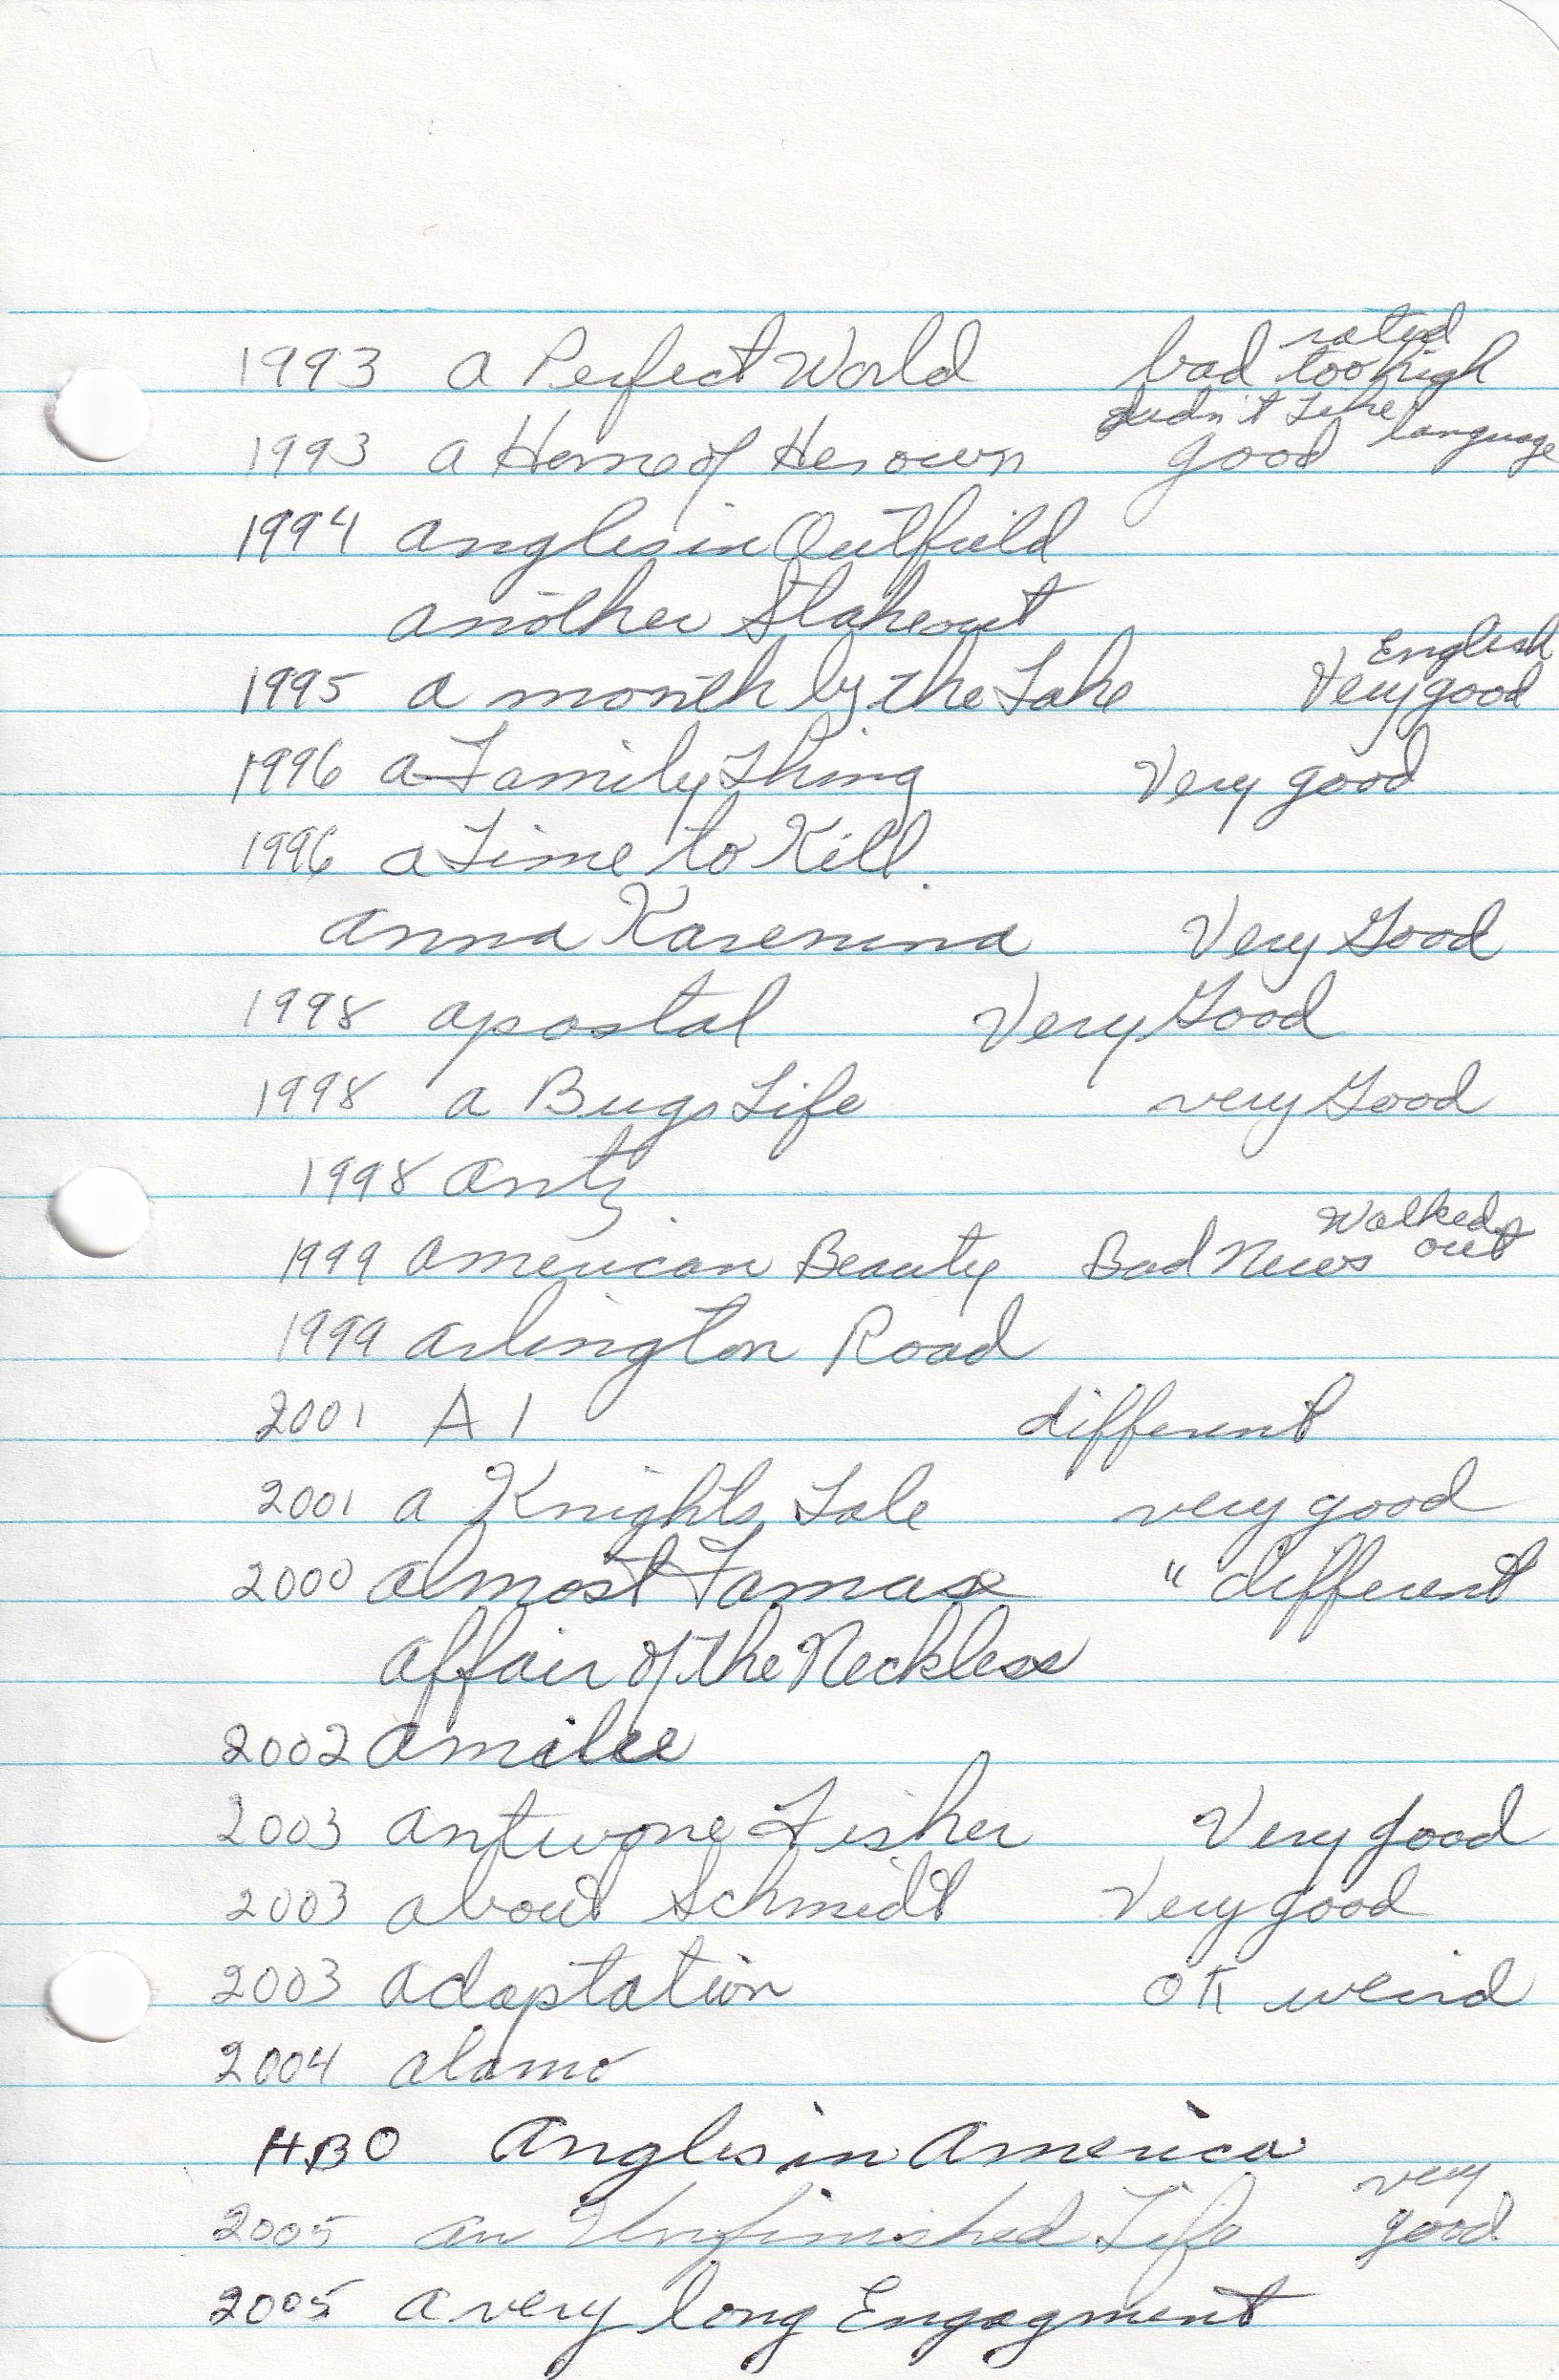 1993 a Perfect World bad rated too high
didn't like language
1993 a Home of Her own good
1994 Angles in Outfield
another Stakeout
1995 a month by the Lake English Very good
1996 a Family Thing Very good
1996 a Time to Kill
Anna Karenina Very Good
1998 apostal Very Good
1998 a Bugs Life very Good
1998 antz
1999 American Beauty Bad News Walked out
1999 Arlington Road
2001 A I different
2001 a Knights Tale very good
2000 almost Famous " different
affair of the Neckless
2002 amilee
2003 Antwone Fisher Very good
2003 about Schmidt Very good
2003 adaptation OK weird
2004 alamo
HBO Angles in America
2005 an Unfinished Life very good
2005 a very long Engagment